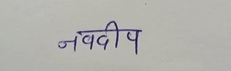 नवदीप